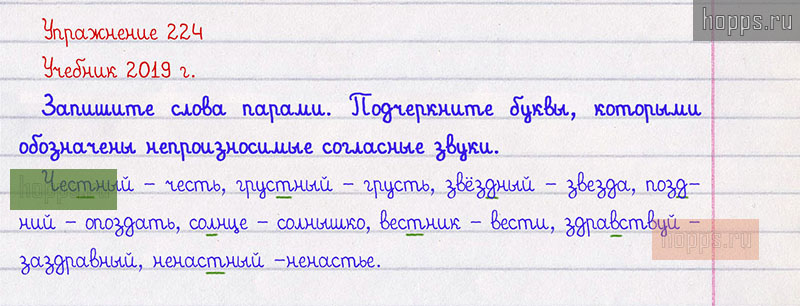 hopps.ru
Упражнение 224
Учебник 2019 г.
Запишите слова парами. Подчеркните буквы, которыми
обозначены непроизносимые согласные звуки.
hopps.ru
Честный – честь, грустный – грусть, звёздный – звезда, позд-
ний – опоздать, солнце – солнышко, вестник – вести, здравствуй –
hopps.ru
заздравный, ненастный –ненастье.